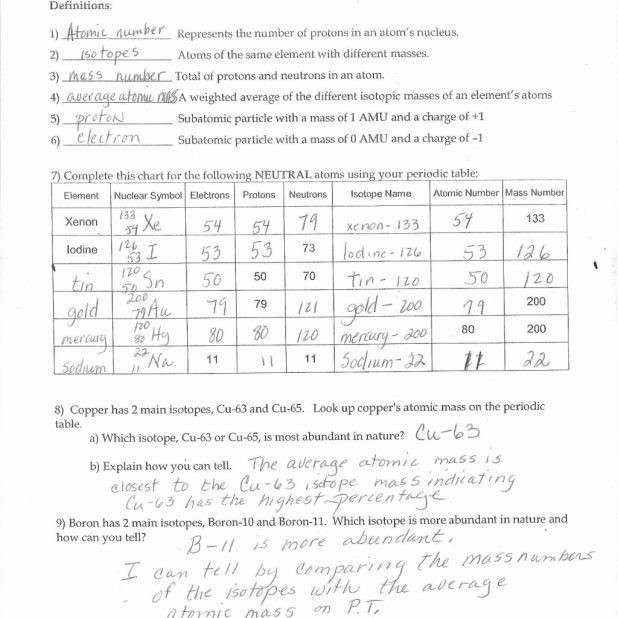 Definitions:
1) Atomic number Represents the number of protons in an atom's nucleus.
2) isotopes Atoms of the same element with different masses.
3) mass number Total of protons and neutrons in an atom.
4) average atomic mass A weighted average of the different isotopic masses of an element's atoms
5) proton Subatomic particle with a mass of 1 AMU and a charge of +1
6) electron Subatomic particle with a mass of 0 AMU and a charge of –1
7) Complete this chart for the following NEUTRAL atoms using your periodic table:
Element Nuclear Symbol Electrons Protons Neutrons Isotope Name Atomic Number Mass Number
Xenon 133 54 Xe 54 54 79 xenon-133 54 133
Iodine 126 53 I 53 53 73 Iodine-126 53 126
tin 120 50 Sn 50 50 70 Tin-120 50 120
gold 200 79 Au 79 79 121 gold-200 79 200
mercury 120 80 Hg 80 80 120 mercury-200 80 200
Sodium 22 11 Na 11 11 11 Sodium-22 11 22
8) Copper has 2 main isotopes, Cu-63 and Cu-65. Look up copper's atomic mass on the periodic
table.
a) Which isotope, Cu-63 or Cu-65, is most abundant in nature? Cu-63
b) Explain how you can tell. The average atomic mass is
closest to the Cu-63 isotope mass indicating
Cu-63 has the highest percentage
9) Boron has 2 main isotopes, Boron-10 and Boron-11. Which isotope is more abundant in nature and
how can you tell? B-11 is more abundant.
I can tell by comparing the mass numbers
of the isotopes with the average
atomic mass on P.T.